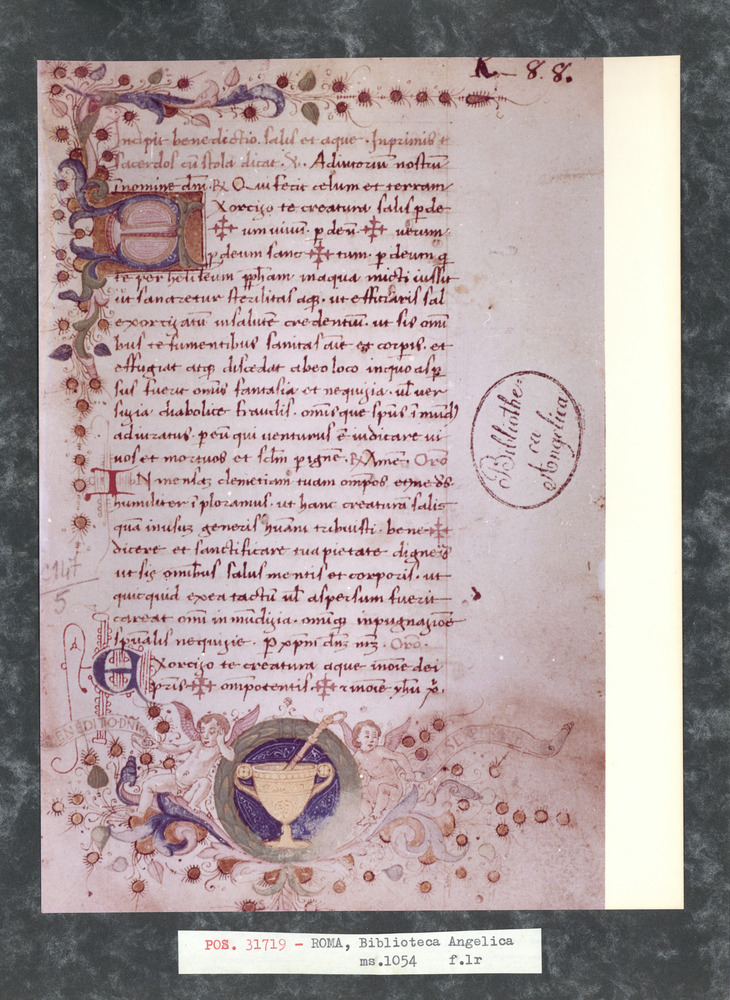 K — 8. 8.
Incipit benedictio. salis et aque. Inprimis
sacerdos cū stola dicat. V. Adiutoriū nostrū
ī nomine dnī. R Qui fecit celum et terram
Exorcizo te creatura salis p de
✠ um vivū. p deū ✠ verum.
p deum sanc ✠ tum. p deum q
te per heliseum pphām in aqua micti iussit
ut sanaretur sterilitas aq. ut efficiaris sal
exorcizatū in salutē credentiū. ut sis omī
bus te sumentibus sanitas aīe et corpis. et
effugiat atq discedat ab eo loco in quo asp
sus fuerit omīs fantasia et nequizia. ul ver
suzia diabolice fraudis. omīsque spūs īmūd
adiuratus. p eū qui venturus ē iudicare vi
vos et mortuos et sclm p ignē. R Amē. Orō
IN mensaz clemetiam tuam omps eterne ds
humiliter īploramus. ut hanc creaturā salis
quā in usuz generis huāni tribuisti. bene ✠
dicere et sanctificare tua pietate digneris
ut sis omībus salus mentis et corporis. ut
quicquid ex ea tactū ul aspersum fuerit
careat omī inmūdizia. omīq inpugnazione
spūalis nequizie. P xpm dnz nrz. Orō.
Exorcizo te creatura aque inoīe dei
pris ✠ omīpotentis ✠ z inoīe yhu x.
Bibliothe-
ca
Angelica
C147
5
BENEDITIO DNI
POS. 31719 - ROMA, Biblioteca Angelica
ms.1054 f.1r